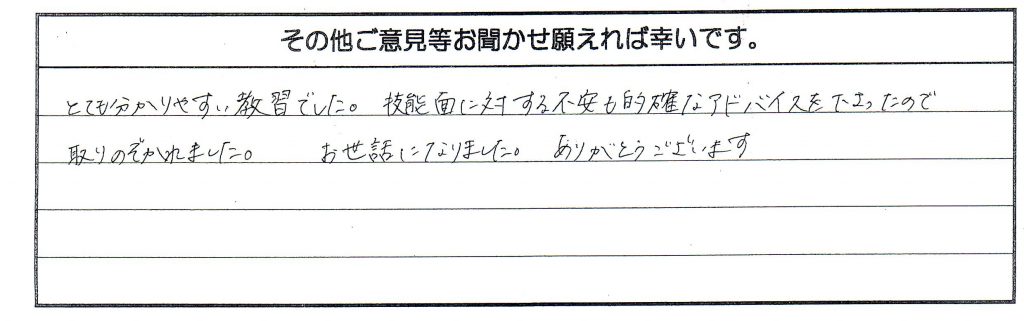 その他ご意見等お聞かせ願えれば幸いです。
とても分かりやすい教習でした。技能面に対する不安も的確なアドバイスを下さったので
取りのぞかれました。 お世話になりました。 ありがとうございます